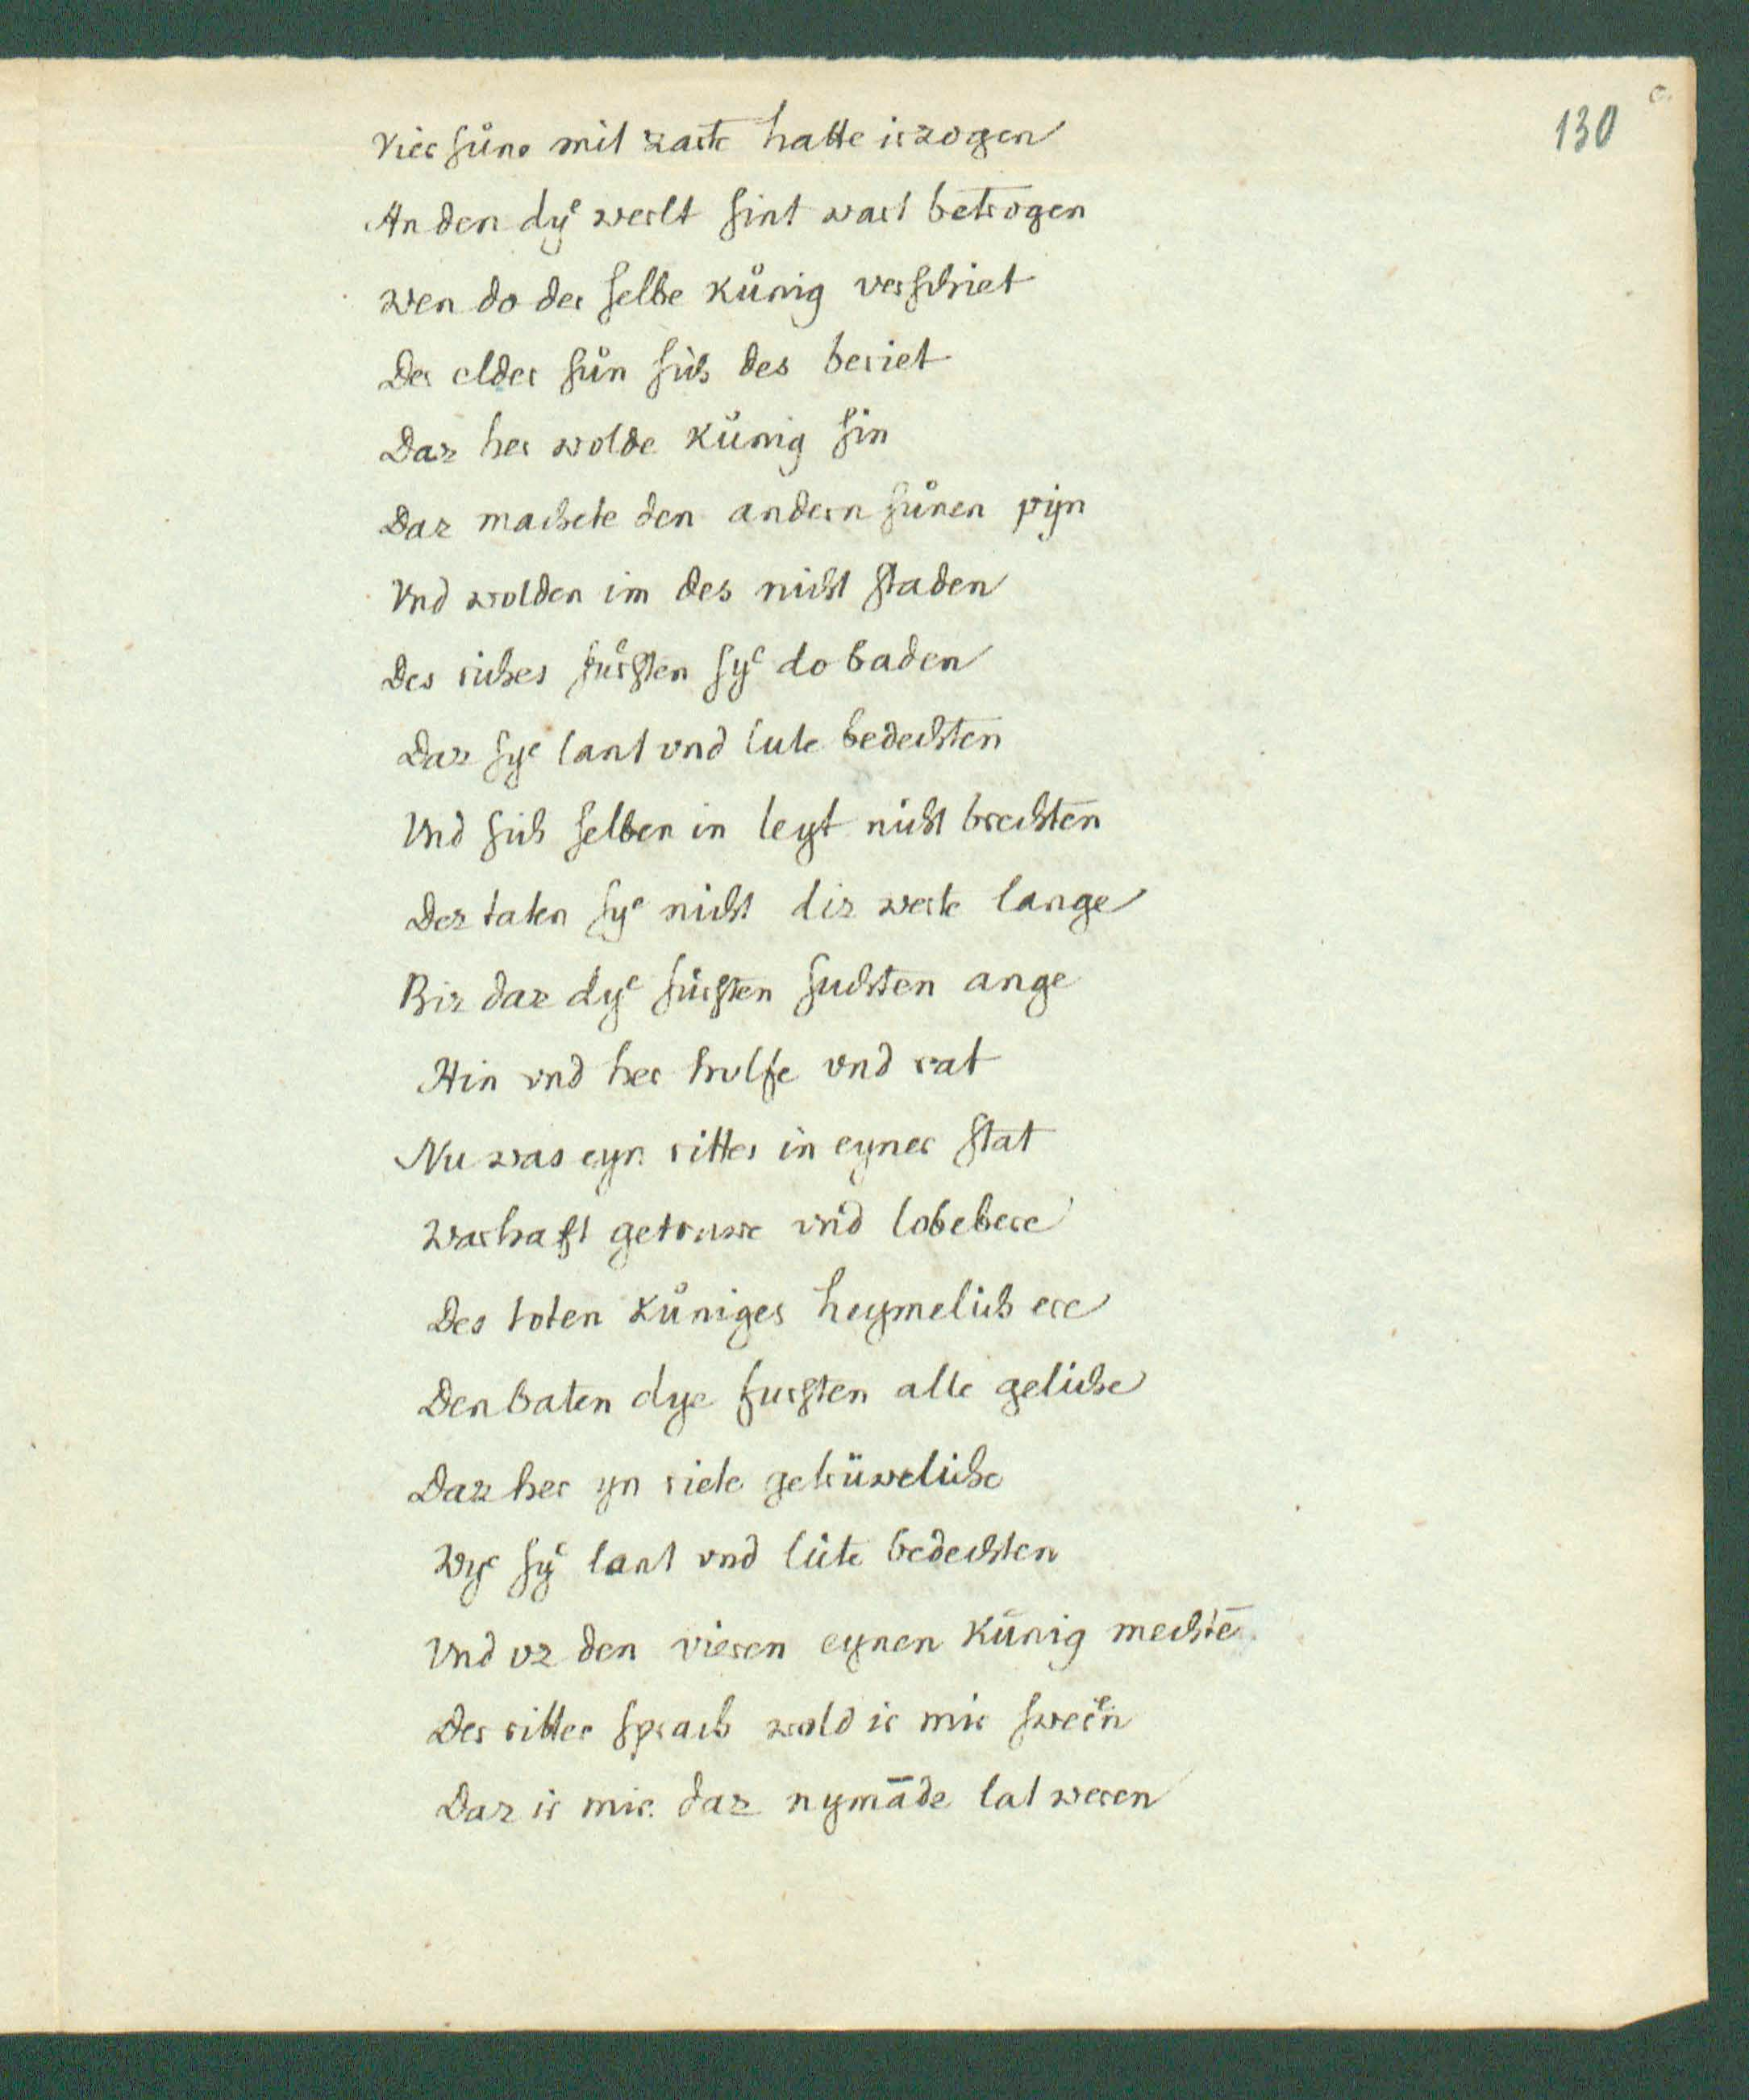 130
c.
Vier ſuͦne mit zarte hatte irzogen
An den dyͤ werlt ſint wart betrogen
wen do der ſelbe kuͦnig verſchiet
Der elder ſuͦn ſich des beriet
Daz her wolde kuͦnig ſin
Daz machete den andern ſuͦnen pijn
Vnd wolden im des nicht ſtaden
Des riches fuͤrſten ſyͤ do baden
Daz ſyͤ lant vnd lute bedechten
Vnd ſich ſelben in leyt nicht brechten
Dez taten ſyͤ nicht diz werte lange
Biz daz dyͤ fürſten ſuchten ange
Hin vnd her hulfe vnd rat
Nu was eyn ritter in eyner ſtat
Warhaft getruwe vnd lobebere
Des toten kuͦniges heymelich ere
Den baten dye furſten alle geliche
Daz her yn riete getrüweliche
Wyͤ ſyͤ lant vnd lüte bedechten
Vnd vz den vieren eynen künig mechtē
Der ritter ſprach wold ir mir ſwern
Daz ir mir daz nymāde lat weren